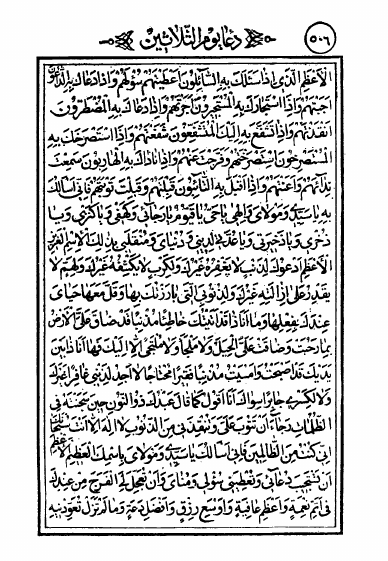 دعاء يوم الثلاثين
٥٠٦
الأعظم الذي إذا سئلك به السائلون أعطيتهم سؤلهم وإذا دعاك به الداعون
أجبتهم وإذا استجارك به المستجيرون أجرتهم وإذا دعاك به المضطرون
أنقذتهم وإذا تشفع به إليك المتشفعون شفعتهم وإذا استصرخك به
المستصرخون استصرختهم وفرجت عنهم وإذا ناداك به الهاربون سمعت
نداءهم وأعنتهم وإذا أقبل به التائبون قبلتهم وقبلت توبتهم فإني أسألك
به يا سيدي ومولاي وإلهي يا حي يا قيوم يا رجائي ويا كهفي ويا كنزي ويا
ذخري ويا ذخيرتي ويا عدتي لديني ودنياي ومنقلبي بذلك الاسم العزيز
الأعظم أدعوك لذنب لا يغفره غيرك ولكرب لا يكشفه غيرك ولهم لا
يقدر على إزالته غيرك ولذنوبي التي بارزتك بها وقل معها حيائي
عندك بفعلها وها أنا ذا قد أتيتك خاطئا مذنبا قد ضاقت علي الأرض
بما رحبت وضاقت علي الحيل ولا ملجأ ولا ملتجى إلا إليك فها أنا ذا بين
يديك قد أصبحت وأمسيت مذنبا فقيرا محتاجا لا أجد لذنبي غافرا غيرك
ولا لكسري جابرا سواك أنا أقول كما قال عبدك ذو النون حين سجنته في
الظلمات رجاء أن تتوب علي وتنقذني من الذنوب لا إله إلا أنت سبحانك
إني كنت من الظالمين فإني أسألك يا سيدي ومولاي باسمك العظيم الأعظم
أن تستجيب دعائي وتعطيني سؤلي ومناي وأن تعجل لي الفرج من عندك
في أتم نعمة وأعظم عافية وأوسع رزق وأفضل دعة وما لم تزل تعودنيه